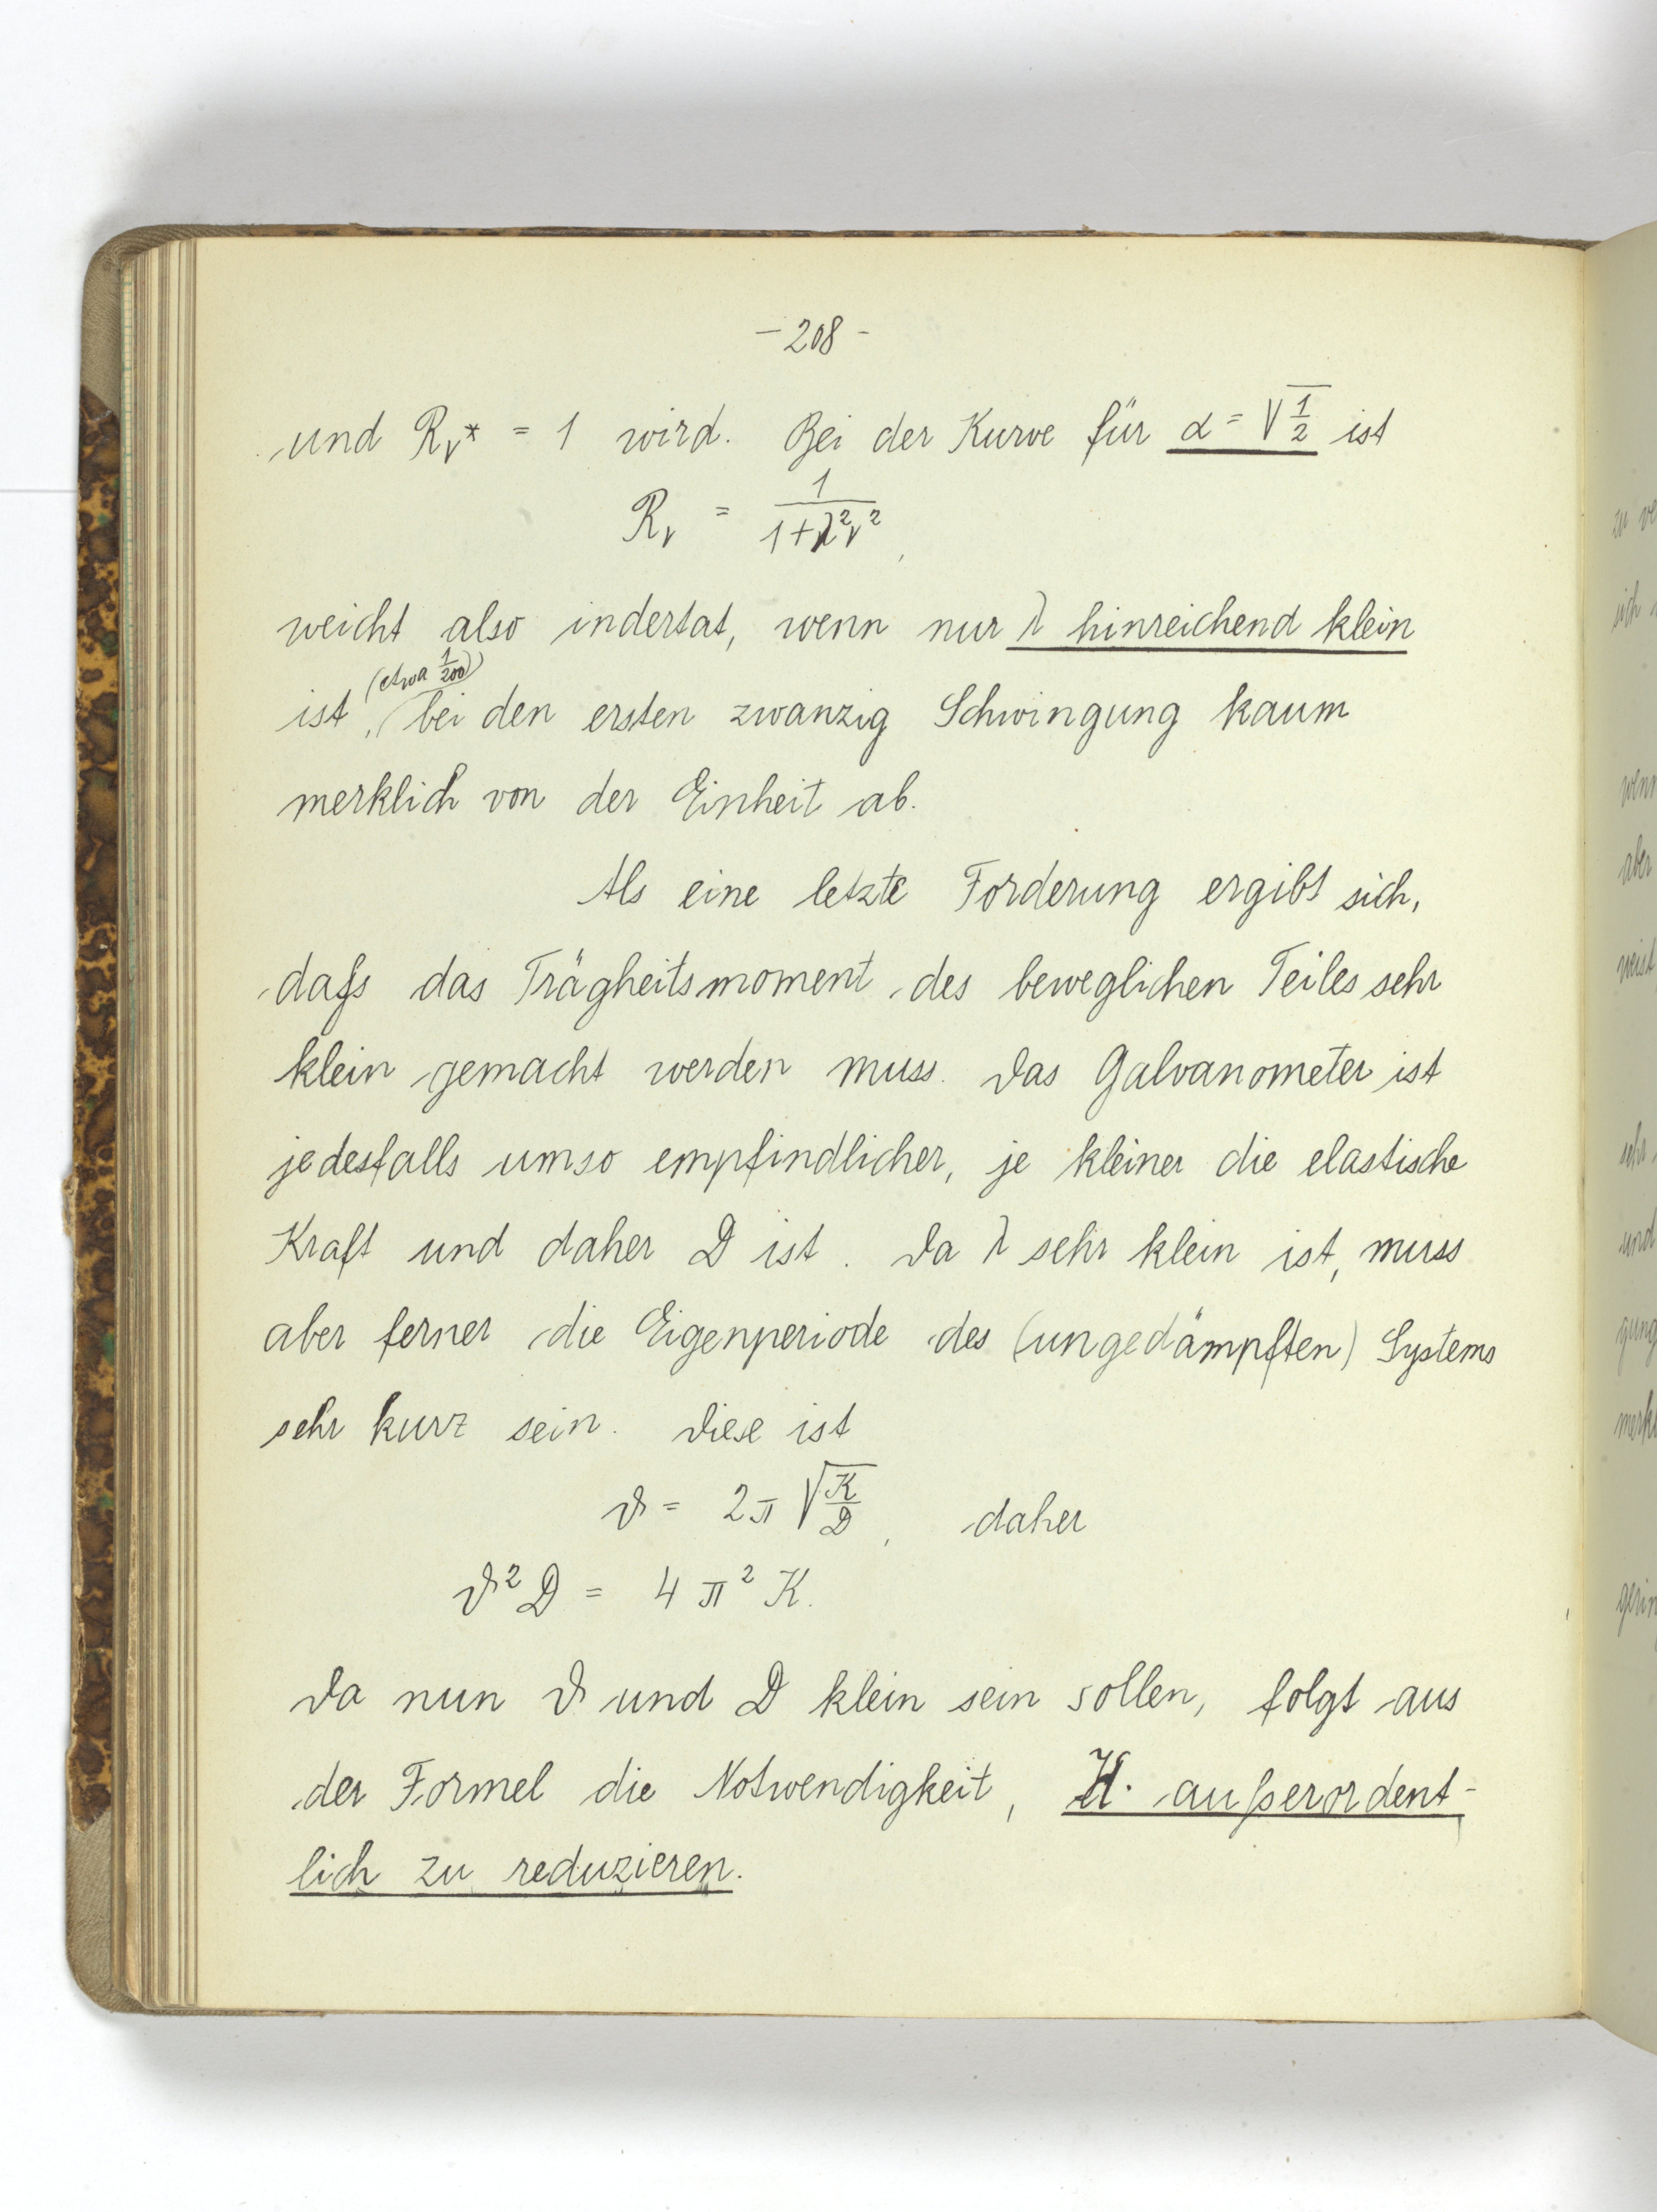 - 208 -
und Rν* = 1 wird. Bei der Kurve für α = √1/2 ist
Rν = 1/(1+λ²ν²),
weicht also indertat, wenn nur λ hinreichend klein
(etwa 1/200)
ist, bei den ersten zwanzig Schwingung kaum
merklich von der Einheit ab.
Als eine letzte Forderung ergibt sich,
dass das Trägheitsmoment des beweglichen Teiles sehr
klein gemacht werden muss. Das Galvanometer ist
jedesfalls umso empfindlicher, je kleiner die elastische
Kraft und daher D ist. Da λ sehr klein ist, muss
aber ferner die Eigenperiode des (ungedämpften) Systems
sehr kurz sein. Diese ist
ϑ = 2π √K/D, daher
ϑ² D = 4 π² K.
Da nun ϑ und D klein sein sollen, folgt aus
der Formel die Notwendigkeit, K. außerordent-
lich zu reduzieren.